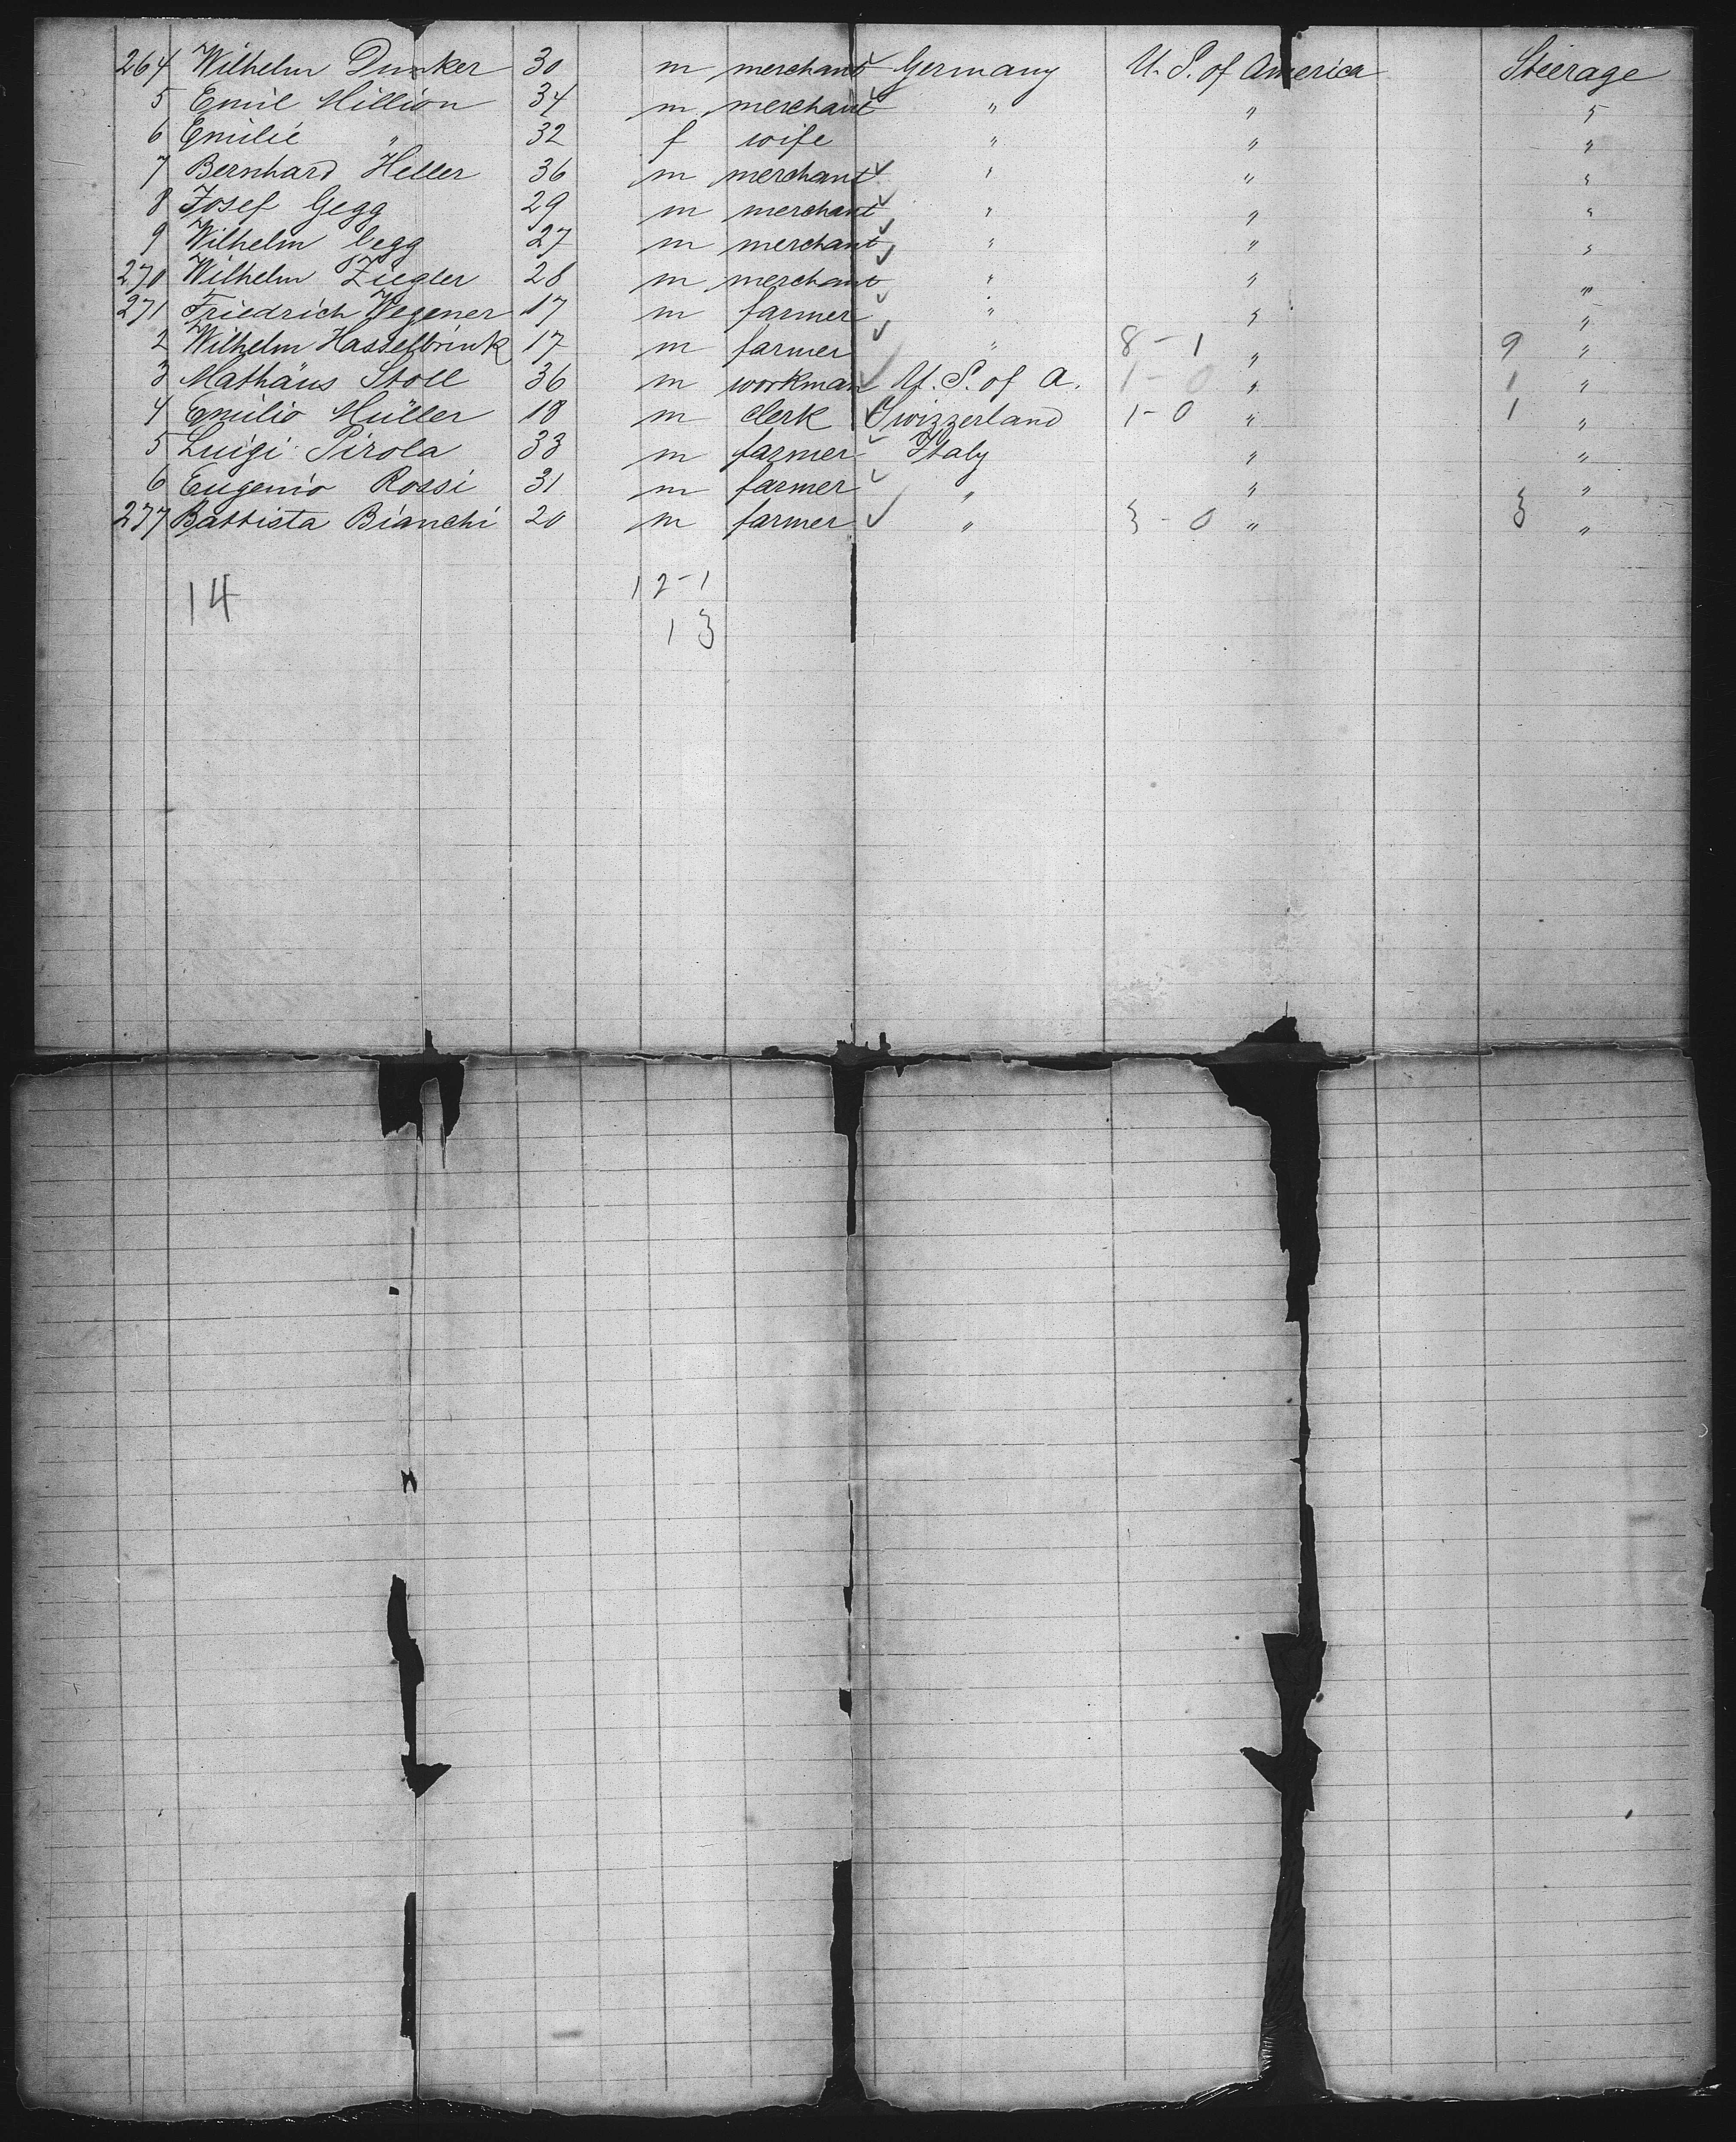 264 Wilhelm Dunker 30 m merchant Germany U.S. of America Steerage
5 Emil Million 34 m merchant " " "
6 Emilie " 32 f wife " " "
7 Bernhard Heller 36 m merchant " " "
8 Josef Gegg 29 m merchant " " "
9 Wilhelm Gegg 27 m merchant " " "
270 Wilhelm Ziegler 28 m merchant " " "
271 Friedrich Wegener 17 m farmer " " "
2 Wilhelm Hasselbrink 17 m farmer " 8-1 " 9 "
3 Mathäus Stoll 36 m workman U.S. of A. 1-0 " 1 "
4 Emilio Müller 18 m clerk Swizzerland 1-0 " 1 "
5 Luigi Pirola 33 m farmer Italy " "
6 Eugenio Rossi 31 m farmer " " "
277 Battista Bianchi 20 m farmer " 3-0 " 3 "
14 12-1
13